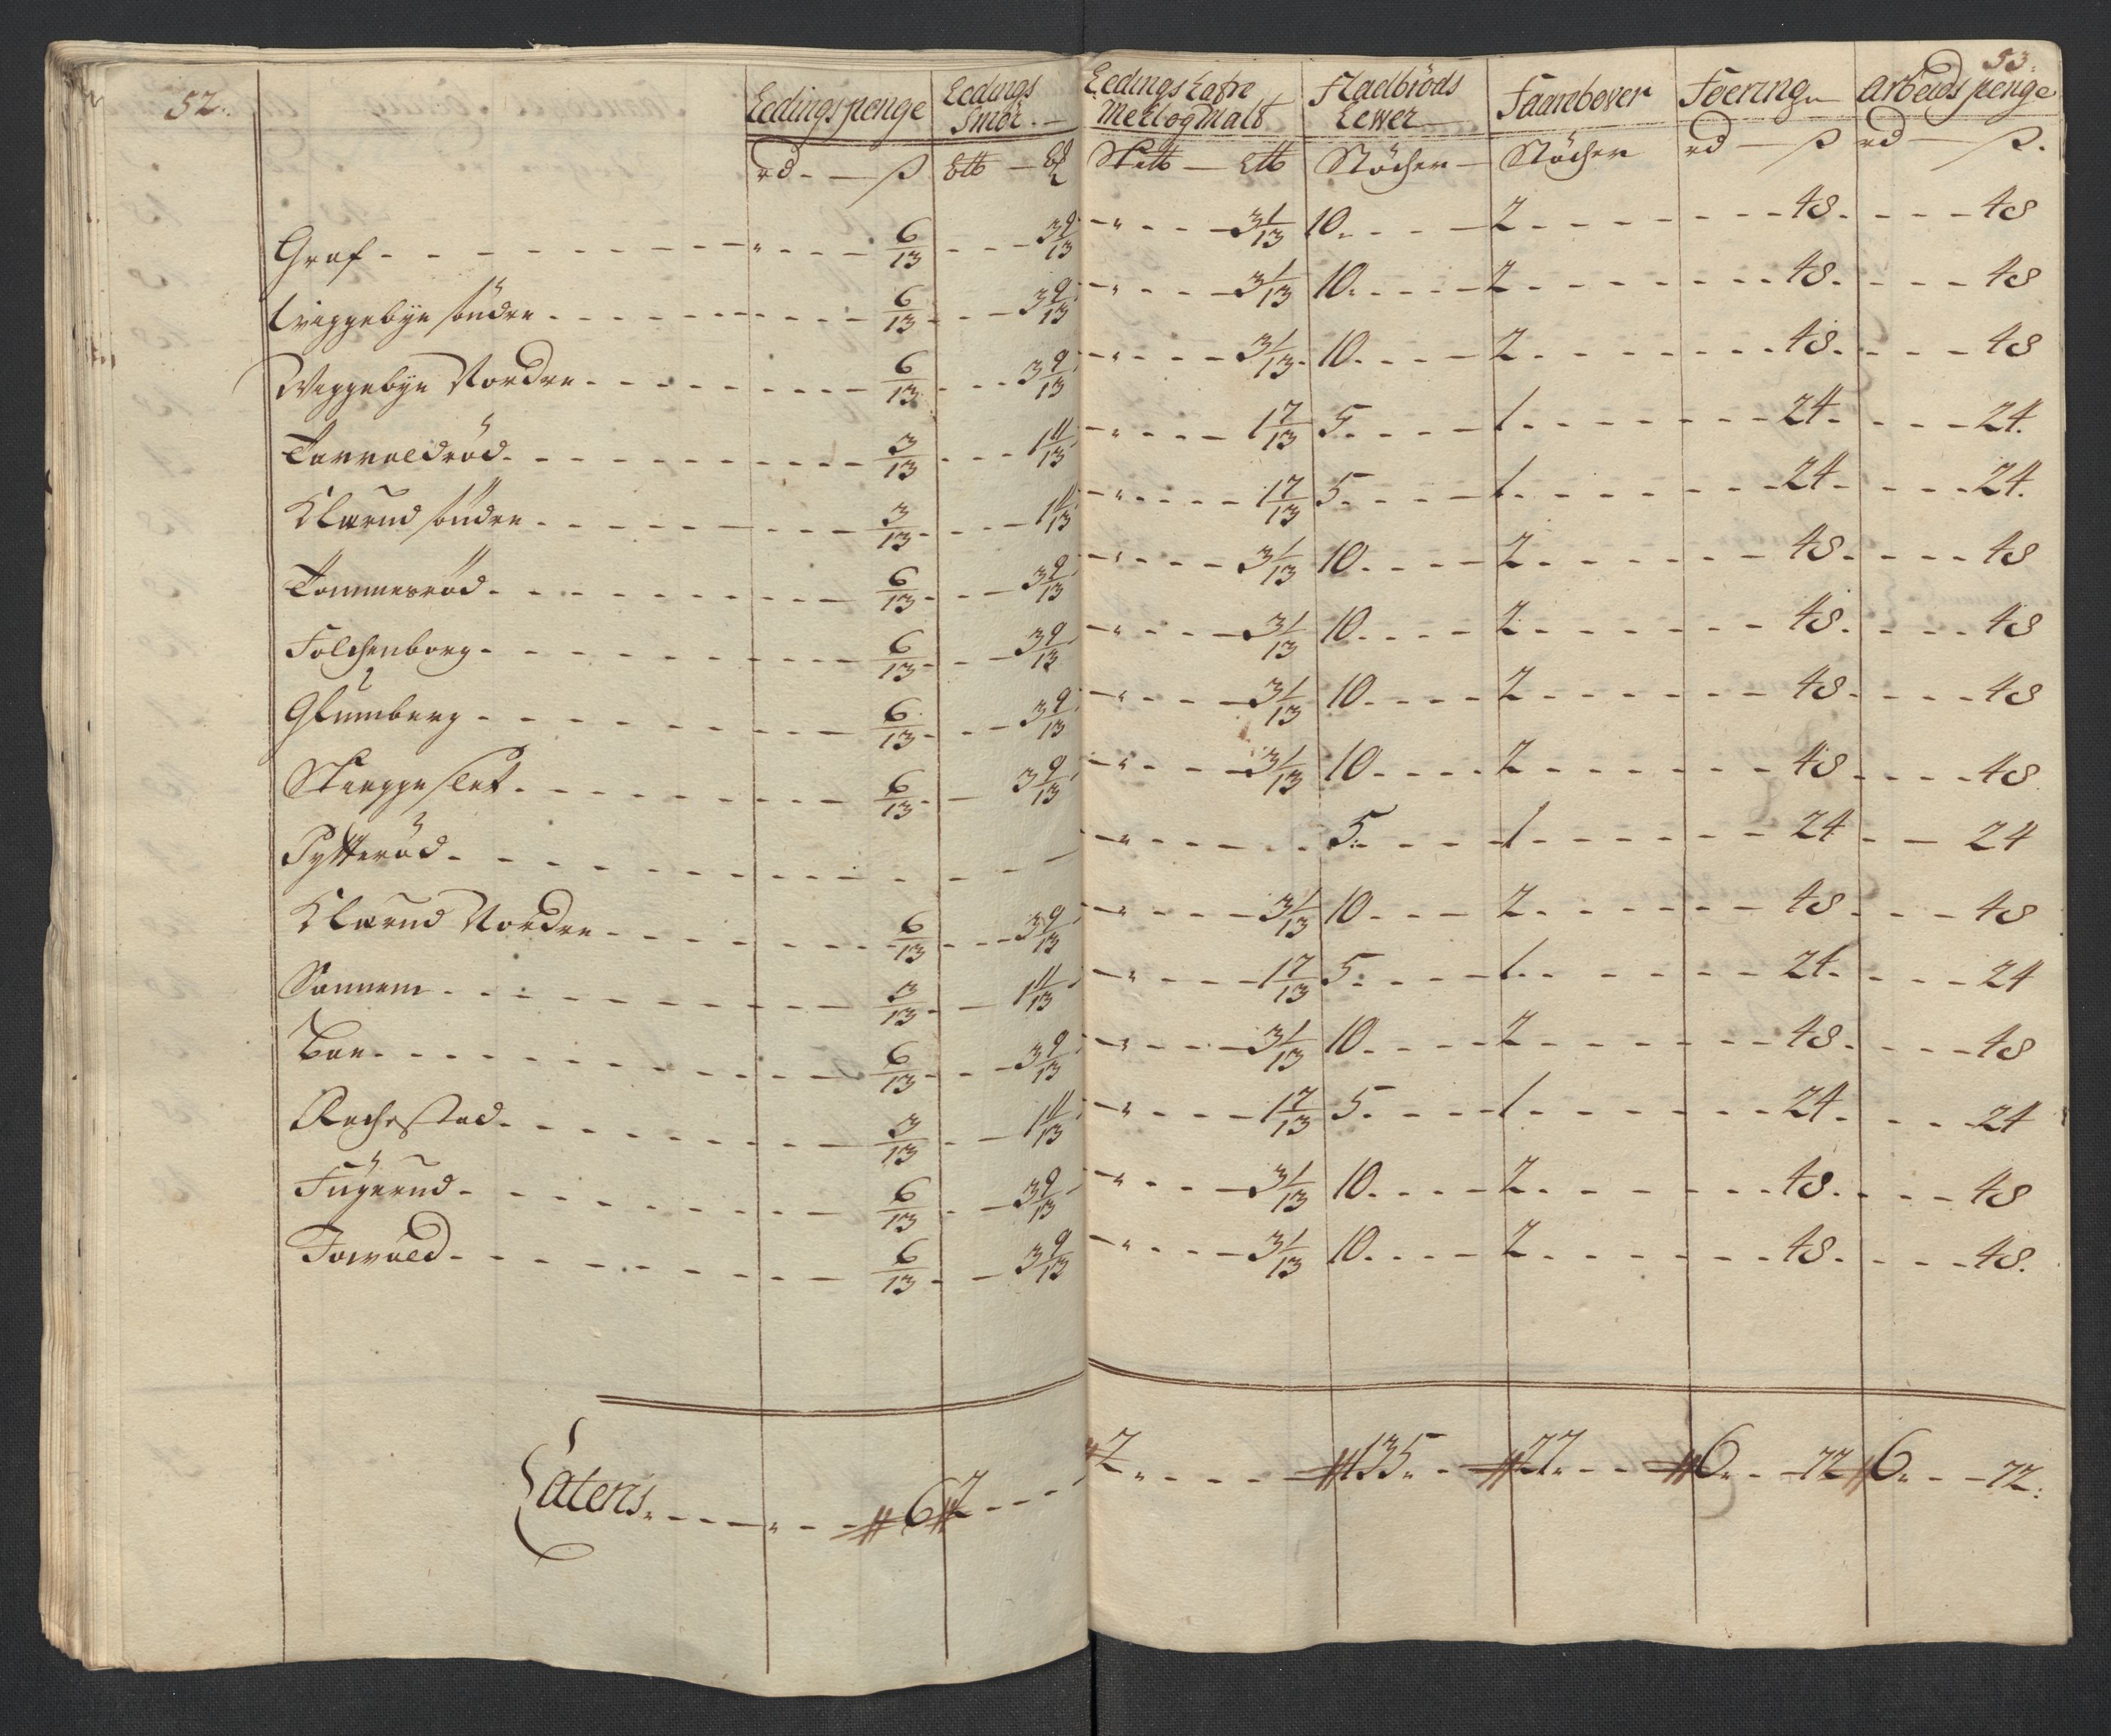 52.
53.
Ledingspenge | Ledings Smör | Ledings Kaffre Meel og Malt | Fladbröds Lewer | Faarebower | Foering | Arbeids penge
rd — ß | | | Stöcher | Stöcher | rd — ß | rd — ß.
Graf 6/13 3 9/13 „ 3 1/13 10 2 48 48
Wiggebye söndre 6/13 3 9/13 „ 3 1/13 10 2 48 48
Wiggebye Nordre 6/13 3 9/13 „ 3 1/13 10 2 48 48
Torvaldröd 3/13 1 11/13 „ 1 7/13 5 1 24 24
Klærud söndre 3/13 1 11/13 „ 1 7/13 5 1 24 24
Tommesröd 6/13 3 9/13 „ 3 1/13 10 2 48 48
Folchenborg 6/13 3 9/13 „ 3 1/13 10 2 48 48
Glumberg 6/13 3 9/13 „ 3 1/13 10 2 48 48
Skieggeslet 6/13 3 9/13 „ 3 1/13 10 2 48 48
Pytteröd „ 5 1 24 24
Klærud Nordre 6/13 3 9/13 „ 3 1/13 10 2 48 48
Sannem 3/13 1 11/13 „ 1 7/13 5 1 24 24
Boe 6/13 3 9/13 „ 3 1/13 10 2 48 48
Rachestad 3/13 1 11/13 „ 1 7/13 5 1 24 24
Fügerud 6/13 3 9/13 „ 3 1/13 10 2 48 48
6/13 3 9/13 „ 3 1/13 10 2 48 48
Lateris „ 6 2 2 135 27 6 72 6 72